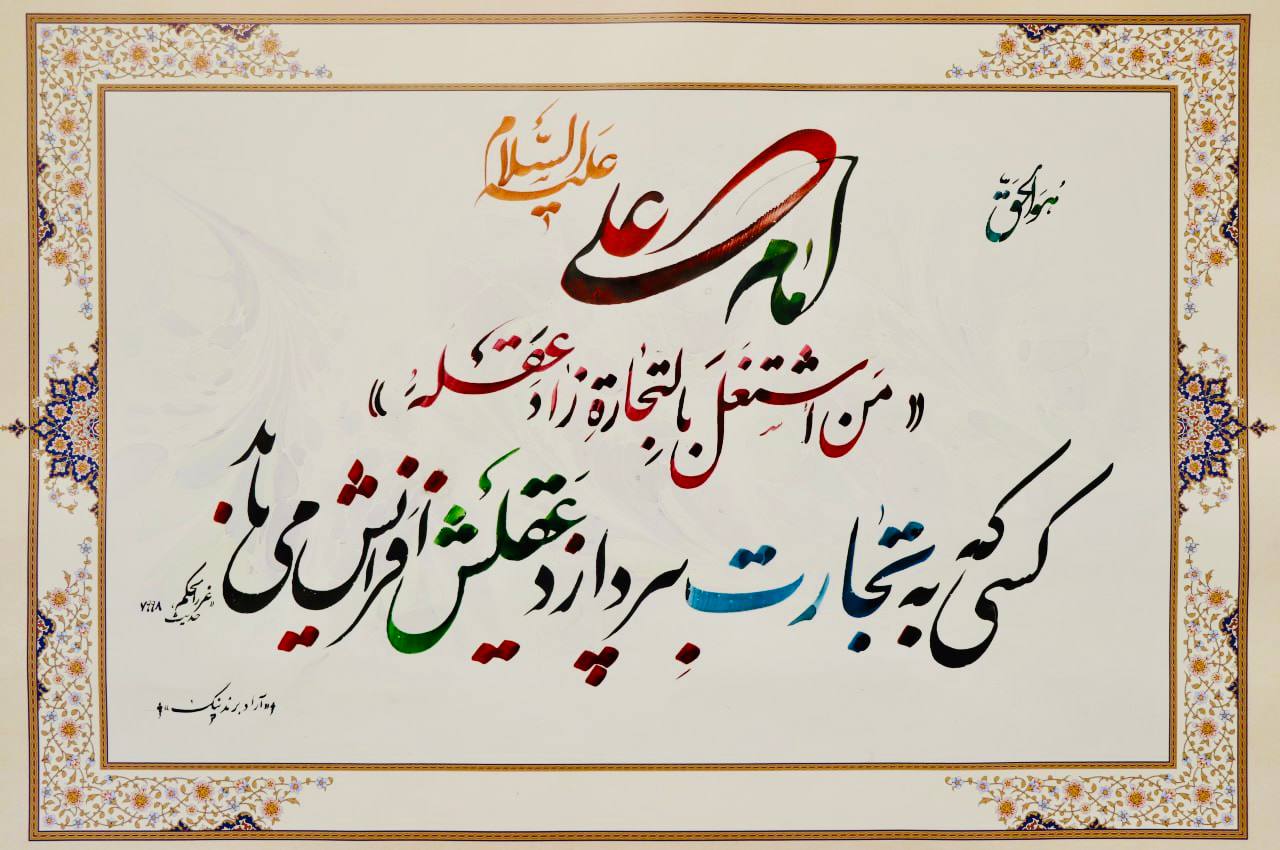 هُوَ الحَقّ
امام علی عَلیهِ السَّلام
« مَن اشتَغَلَ بالتِجارَةِ زادَ عَقلهُ »
کسی که به تجارت بِپردازد عَقلیش افزایش می یابد
«غررالحکم، حدیث
«آراد برندینگ»